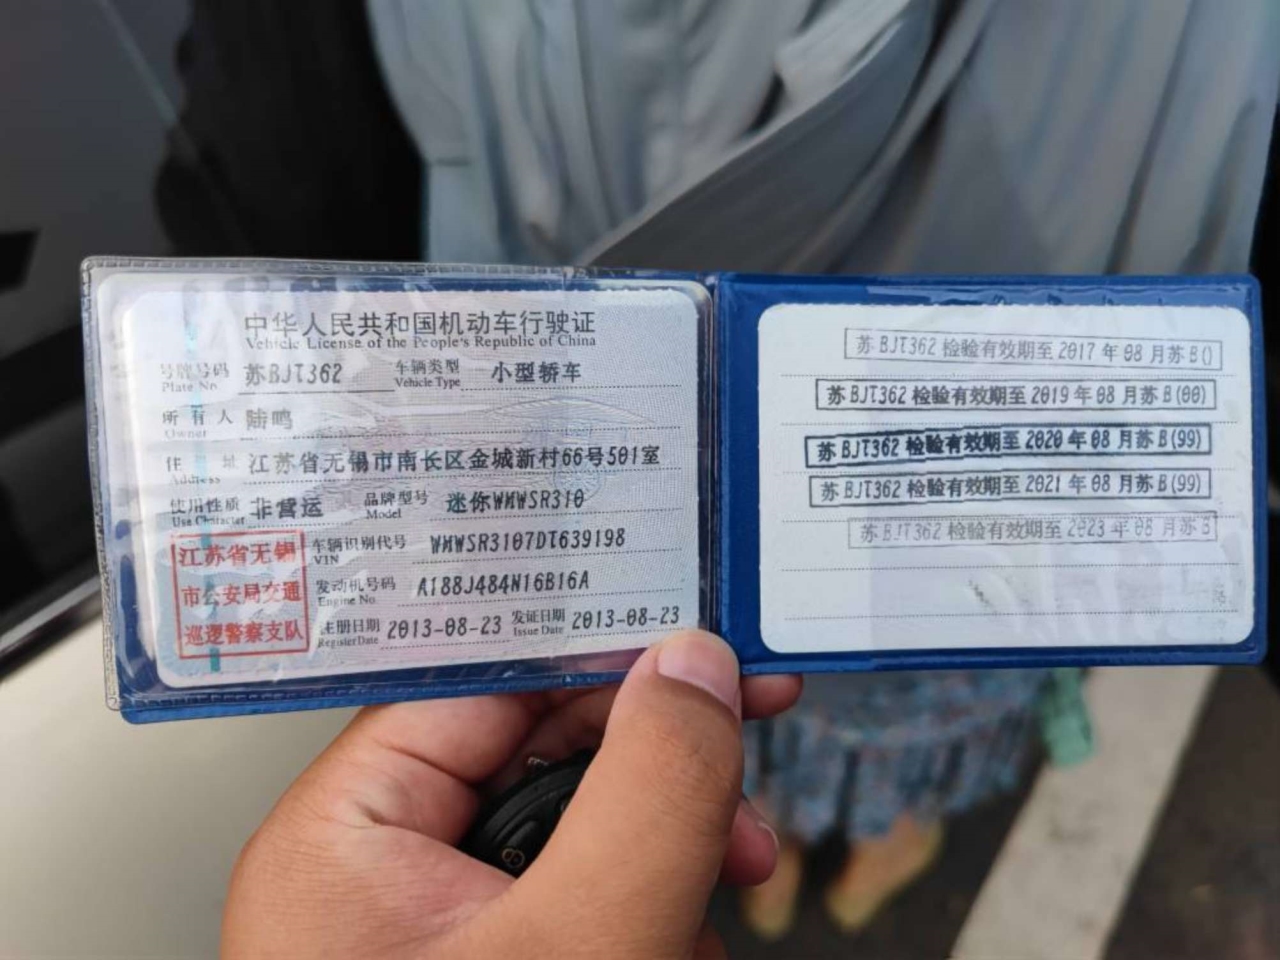 中华人民共和国机动车行驶证
Vehicle License of the People's Republic of China
号牌号码 苏BJT362 车辆类型 小型轿车
Plate No. Vehicle Type
所有人 陆鸣
Owner
住址 江苏省无锡市南长区金城新村66号501室
Address
使用性质 非营运 品牌型号 迷你WMWSR310
Use Character Model
江苏省无锡
市公安局交通
巡逻警察支队
车辆识别代号 WMWSR3107DT639198
VIN
发动机号码 A188J484N16B16A
Engine No.
注册日期 2013-08-23 发证日期 2013-08-23
Register Date Issue Date
苏BJT362 检验有效期至 2017 年 08 月苏B()
苏BJT362 检验有效期至 2019 年 08 月苏B(00)
苏BJT362 检验有效期至 2020 年 08 月苏B(99)
苏BJT362 检验有效期至 2021 年 08 月苏B(99)
苏BJT362 检验有效期至 2023 年 08 月苏B